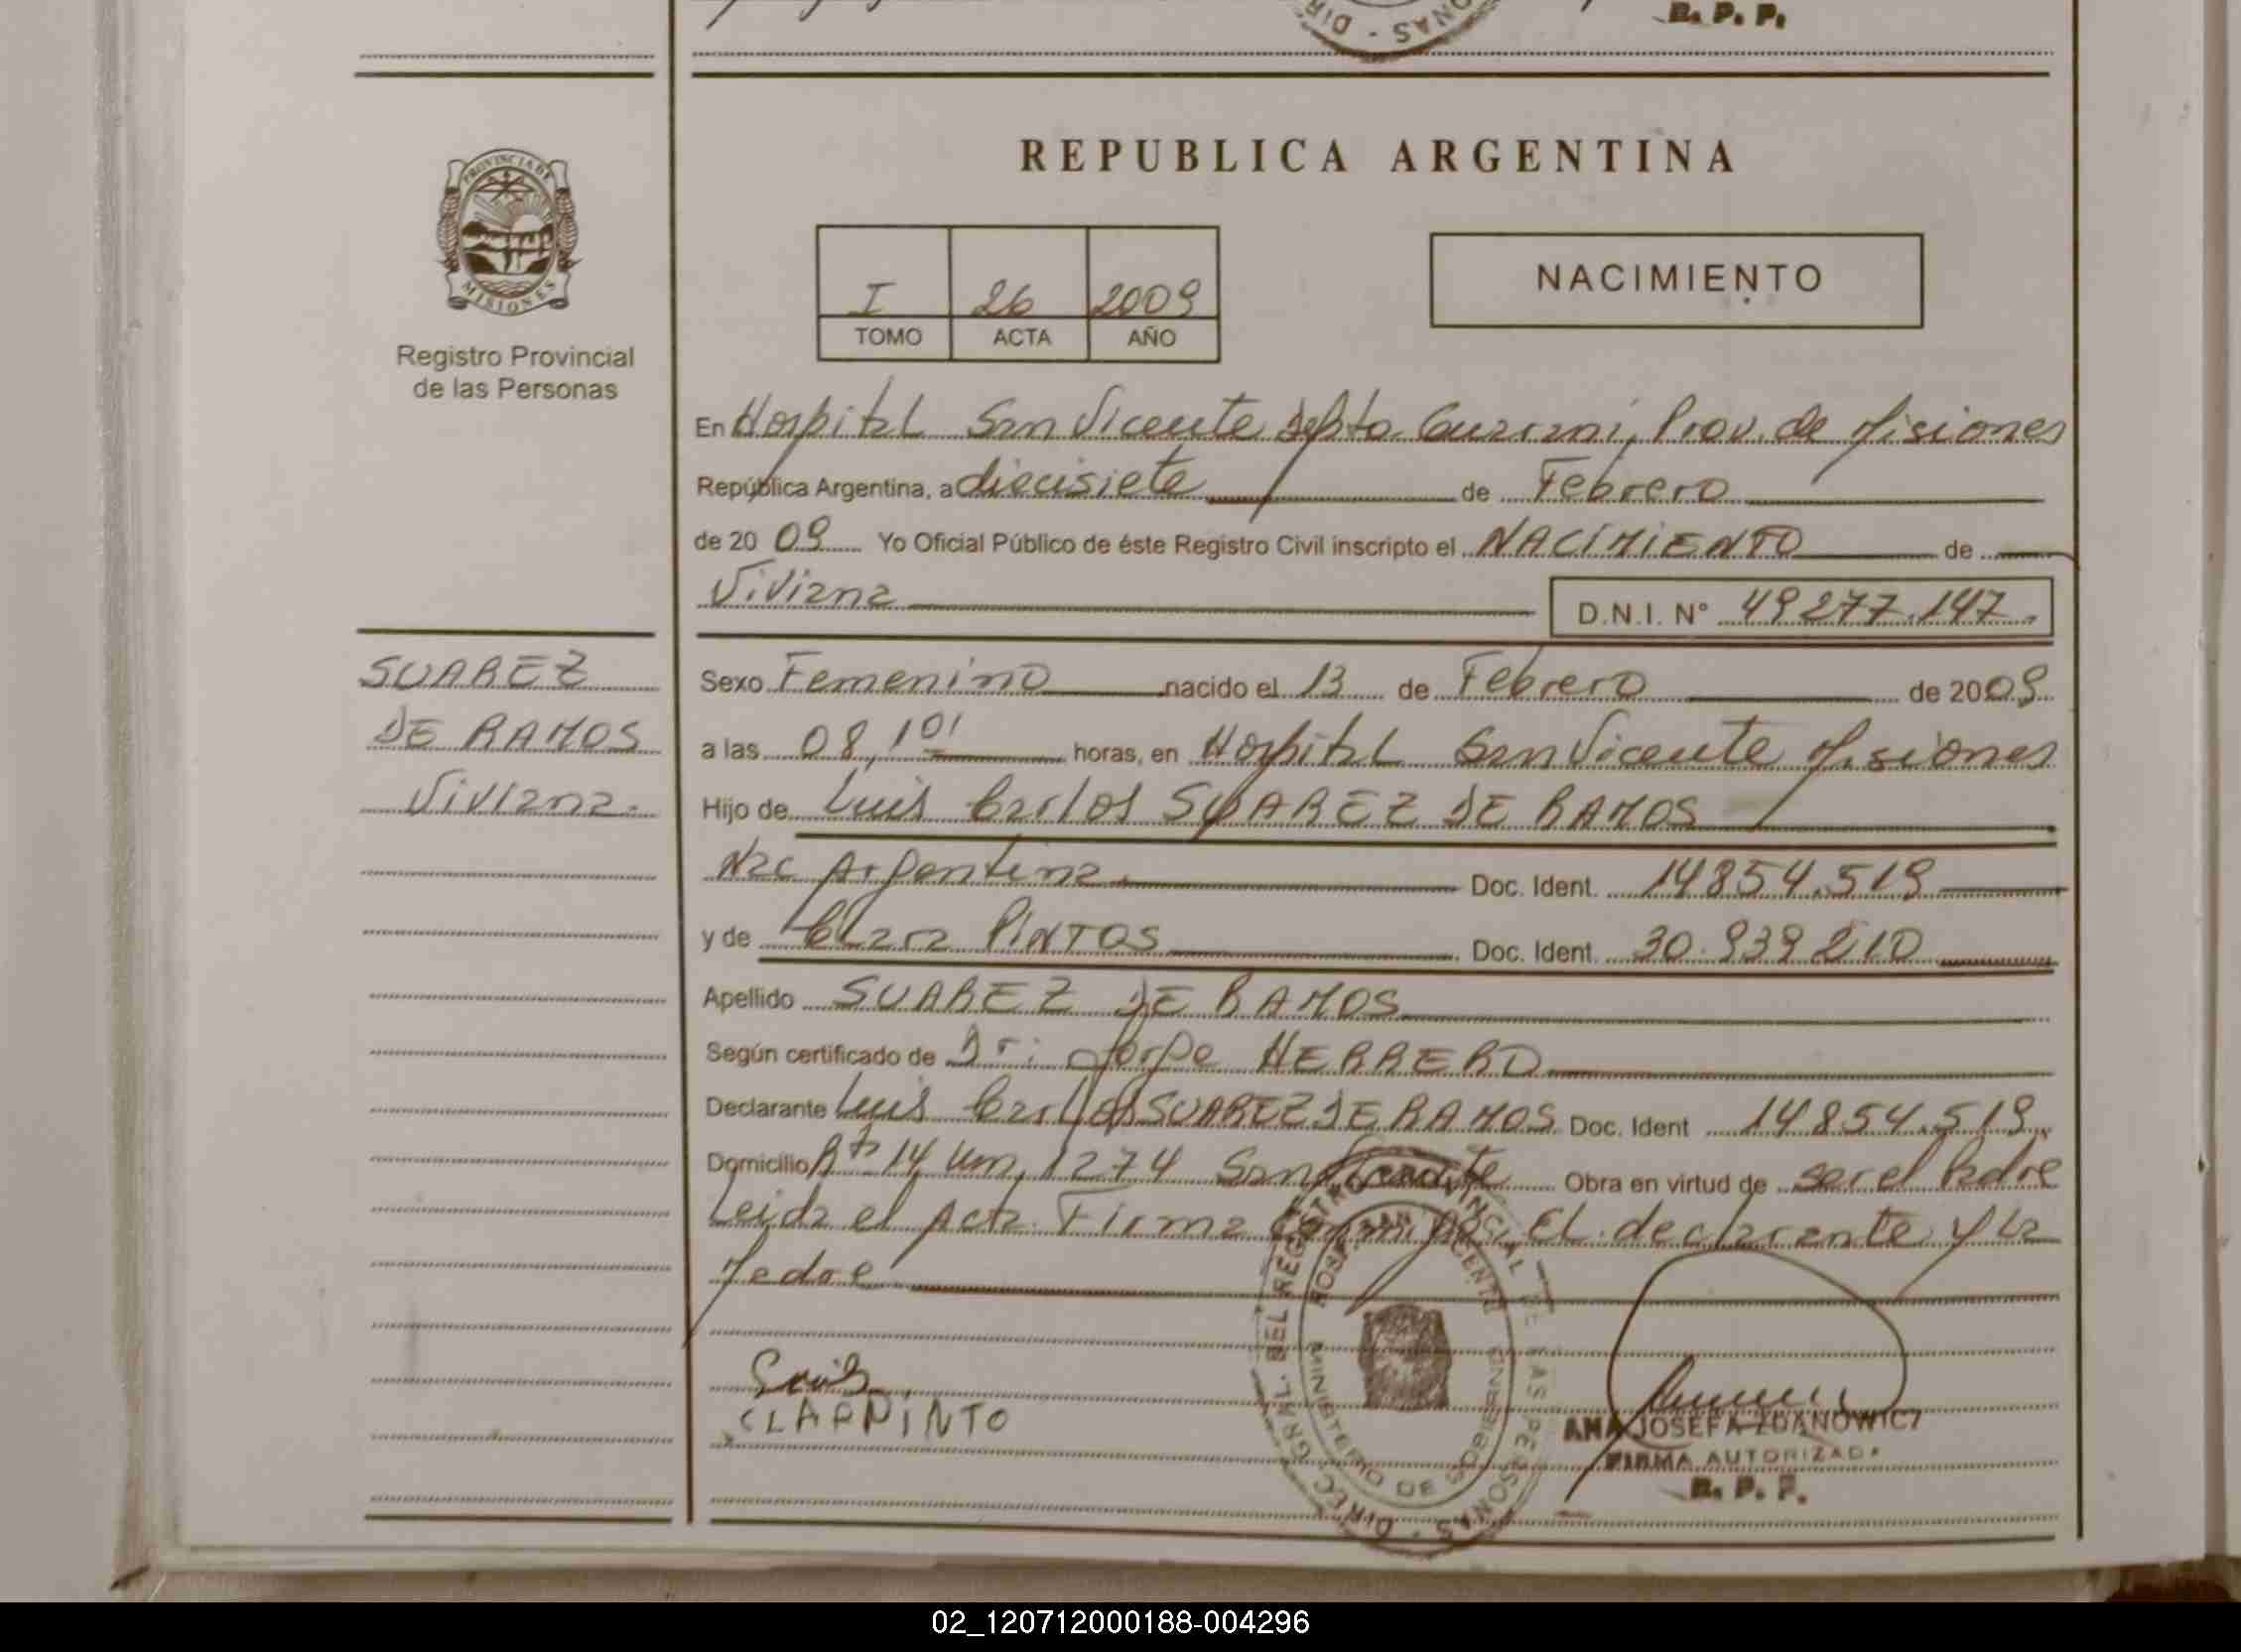 R. P. P.
REPUBLICA ARGENTINA
PROVINCIA DE
MISIONES
Registro Provincial
de las Personas
I 26 2009
TOMO ACTA AÑO
NACIMIENTO
En Hospital San Vicente Depto Guarani, Prov. de Misiones
República Argentina, a diecisiete de Febrero
de 20 09 Yo Oficial Público de éste Registro Civil inscripto el NACIMIENTO de
Viviana D.N.I. N° 49277.147.
SUAREZ
DE RAMOS
Viviana.
Sexo Femenino nacido el 13 de Febrero de 2009
a las 08,10' horas, en Hospital San Vicente Misiones
Hijo de Luis Carlos SUAREZ DE RAMOS
Nac Argentina. Doc. Ident. 14854.519
y de Clara PINTOS Doc. Ident. 30.939210
Apellido SUAREZ DE RAMOS
Según certificado de Dr: Jorge HERRERO
Declarante Luis Carlos SUAREZ DE RAMOS Doc. Ident 14854.519.
Domicilio Rta 14 Km, 1274 San Vicente Obra en virtud de ser el Padre
Leida el Acta Firma Conmigo, El declarante y La
Madre
CLARPINTO
DIREC. GRAL. DEL REGISTRO PROVINCIAL DE LAS PERSONAS
HOSP. SAN VICENTE
MINISTERIO DE GOBIERNO
ANA JOSEFA ZDANOWICZ
FIRMA AUTORIZADA
R. P. P.
02_120712000188-004296